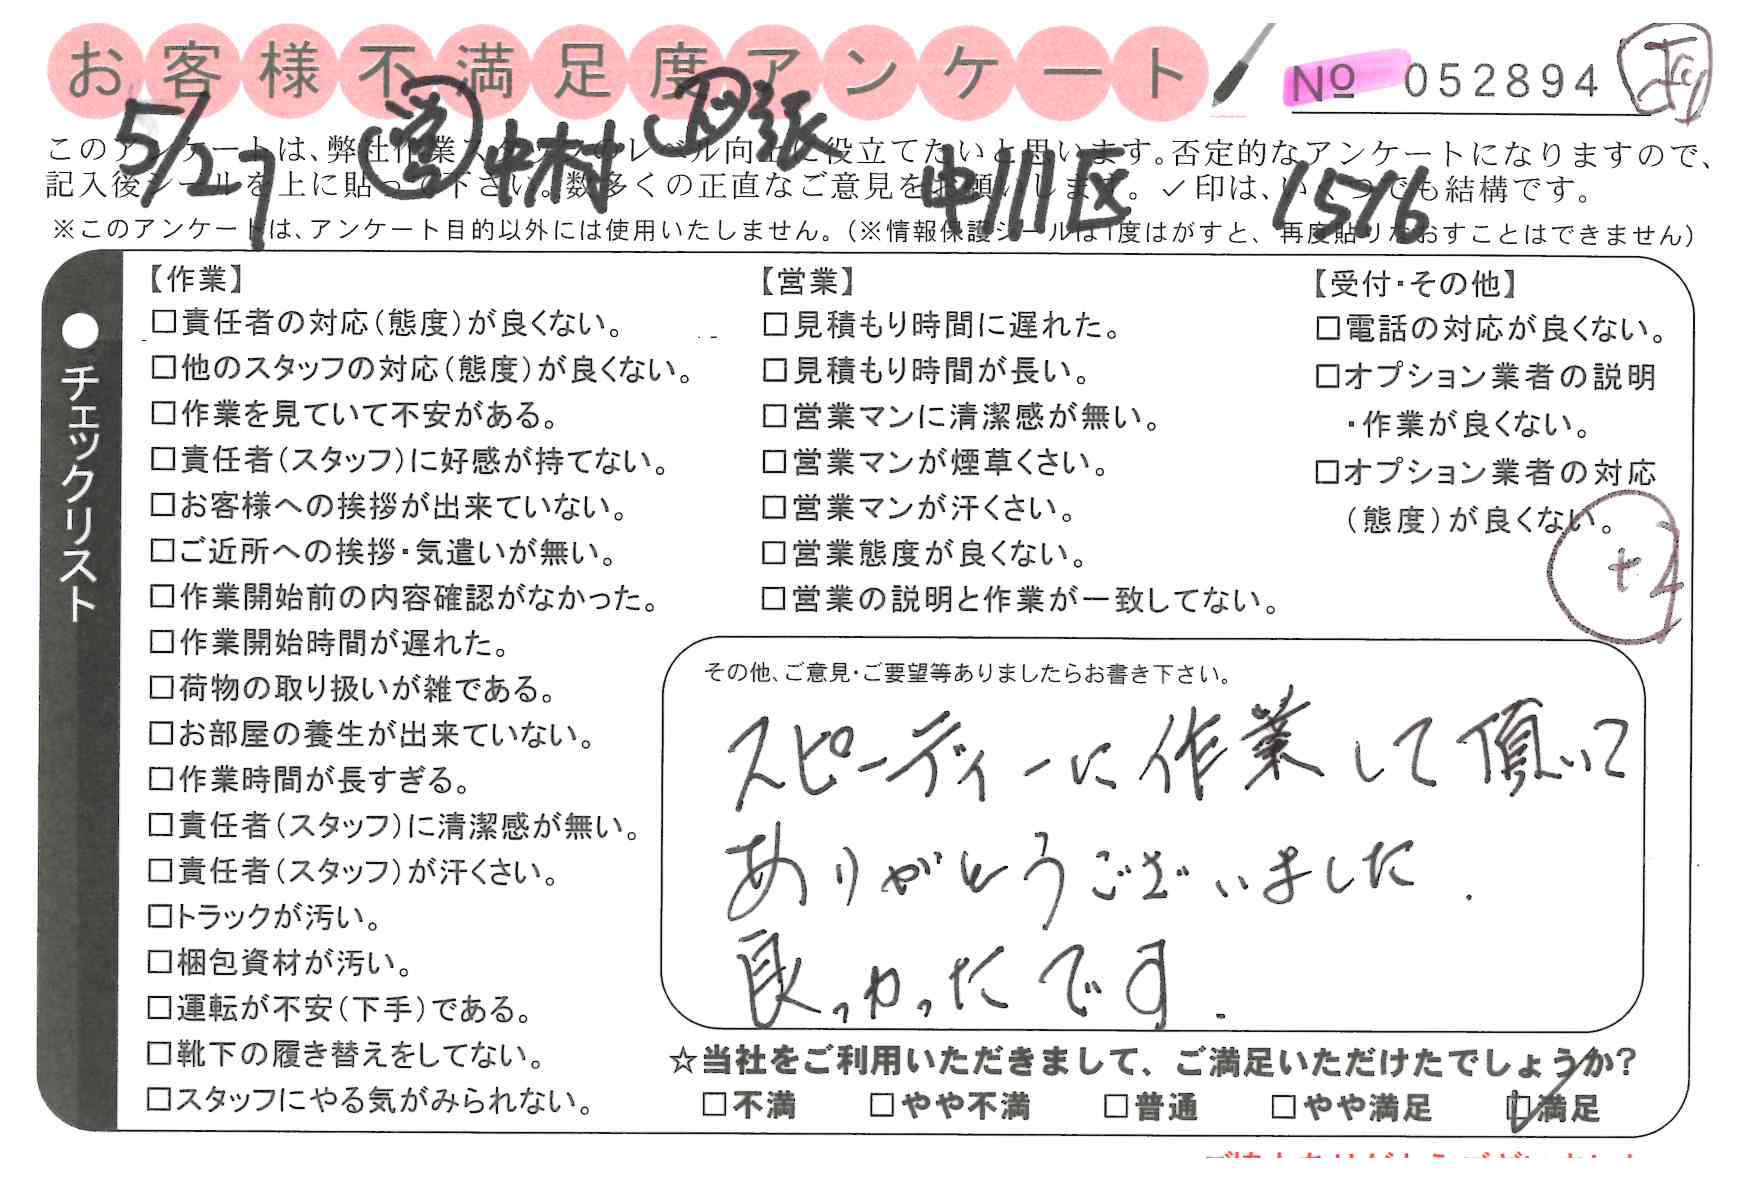 お客様不満足度アンケート
No 052894
5/27 営 中村 日張 中川区 1516
このアンケートは、弊社作業スタッフのレベル向上に役立てたいと思います。否定的なアンケートになりますので、
記入後シールを上に貼って下さい。数多くの正直なご意見をお願いします。✓印は、いくつでも結構です。
※このアンケートは、アンケート目的以外には使用いたしません。(※情報保護シールは1度はがすと、再度貼りなおすことはできません)
●チェックリスト
【作業】
□責任者の対応(態度)が良くない。
□他のスタッフの対応(態度)が良くない。
□作業を見ていて不安がある。
□責任者(スタッフ)に好感が持てない。
□お客様への挨拶が出来ていない。
□ご近所への挨拶・気遣いが無い。
□作業開始前の内容確認がなかった。
□作業開始時間が遅れた。
□荷物の取り扱いが雑である。
□お部屋の養生が出来ていない。
□作業時間が長すぎる。
□責任者(スタッフ)に清潔感が無い。
□責任者(スタッフ)が汗くさい。
□トラックが汚い。
□梱包資材が汚い。
□運転が不安(下手)である。
□靴下の履き替えをしてない。
□スタッフにやる気がみられない。
【営業】
□見積もり時間に遅れた。
□見積もり時間が長い。
□営業マンに清潔感が無い。
□営業マンが煙草くさい。
□営業マンが汗くさい。
□営業態度が良くない。
□営業の説明と作業が一致してない。
【受付・その他】
□電話の対応が良くない。
□オプション業者の説明
・作業が良くない。
□オプション業者の対応
(態度)が良くない。
+1
その他、ご意見・ご要望等ありましたらお書き下さい。
スピーディーに作業して頂いて
ありがとうございました.
良かったです.
☆当社をご利用いただきまして、ご満足いただけたでしょうか?
□不満 □やや不満 □普通 □やや満足 ☑満足